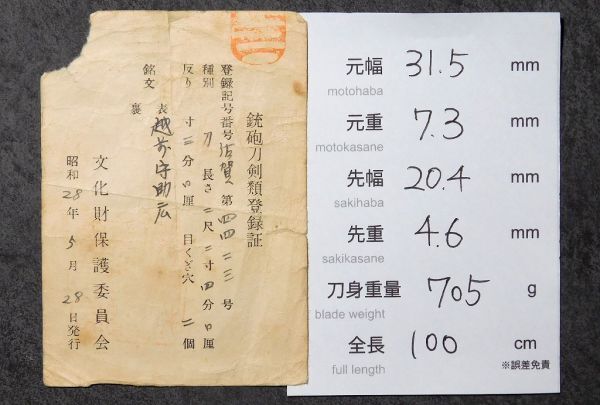 銃砲刀剣類登録証
登録記号番号 佐賀 第 四四二三 号
種別 刀 長さ 二尺二寸四分口厘
反り 寸三分口厘 目くぎ穴 二個
銘文 表 越前守助広
裏
昭和28年5月28日発行
文化財保護委員会
元幅 31.5 mm
motohaba
元重 7.3 mm
motokasane
先幅 20.4 mm
sakihaba
先重 4.6 mm
sakikasane
刀身重量 705 g
blade weight
全長 100 cm
full length
※誤差免責